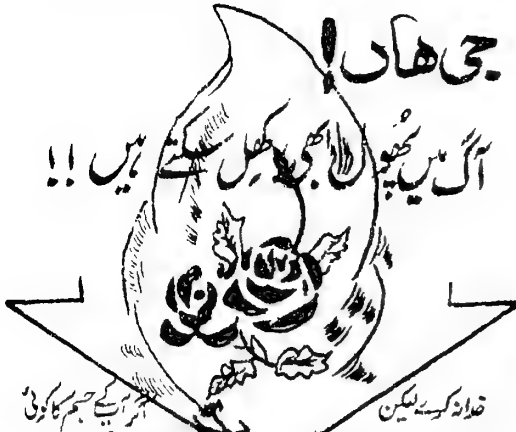 جی ھاں!
آگ میں پُھول بھی کِھل سکتے ہیں !!
خدانہ کرے لیکن
اگر آپ کے جسم کا کوئی